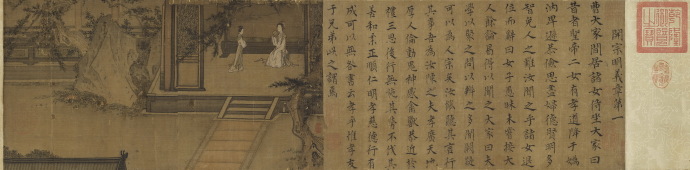 開宗明義章第一
曹大家閒居諸女侍坐大家曰
昔者聖帝二女有孝道降于媯
汭卑遜恭儉思盡婦德賢明多
智免人之難汝聞之乎諸女退
位而辭曰女子愚昧未嘗接大
人餘論曷得以聞之大家曰夫
學以聚之問以辨之多聞闕疑
可以為人宗矣汝能聽其言行
其事吾為汝陳之夫孝廣天地
厚人倫動鬼神感禽獸恭近於
禮三思後行無施其勞不伐其
善和柔正順仁明孝慈德行有
成可以無咎書云孝乎惟孝友
于兄弟此之謂焉